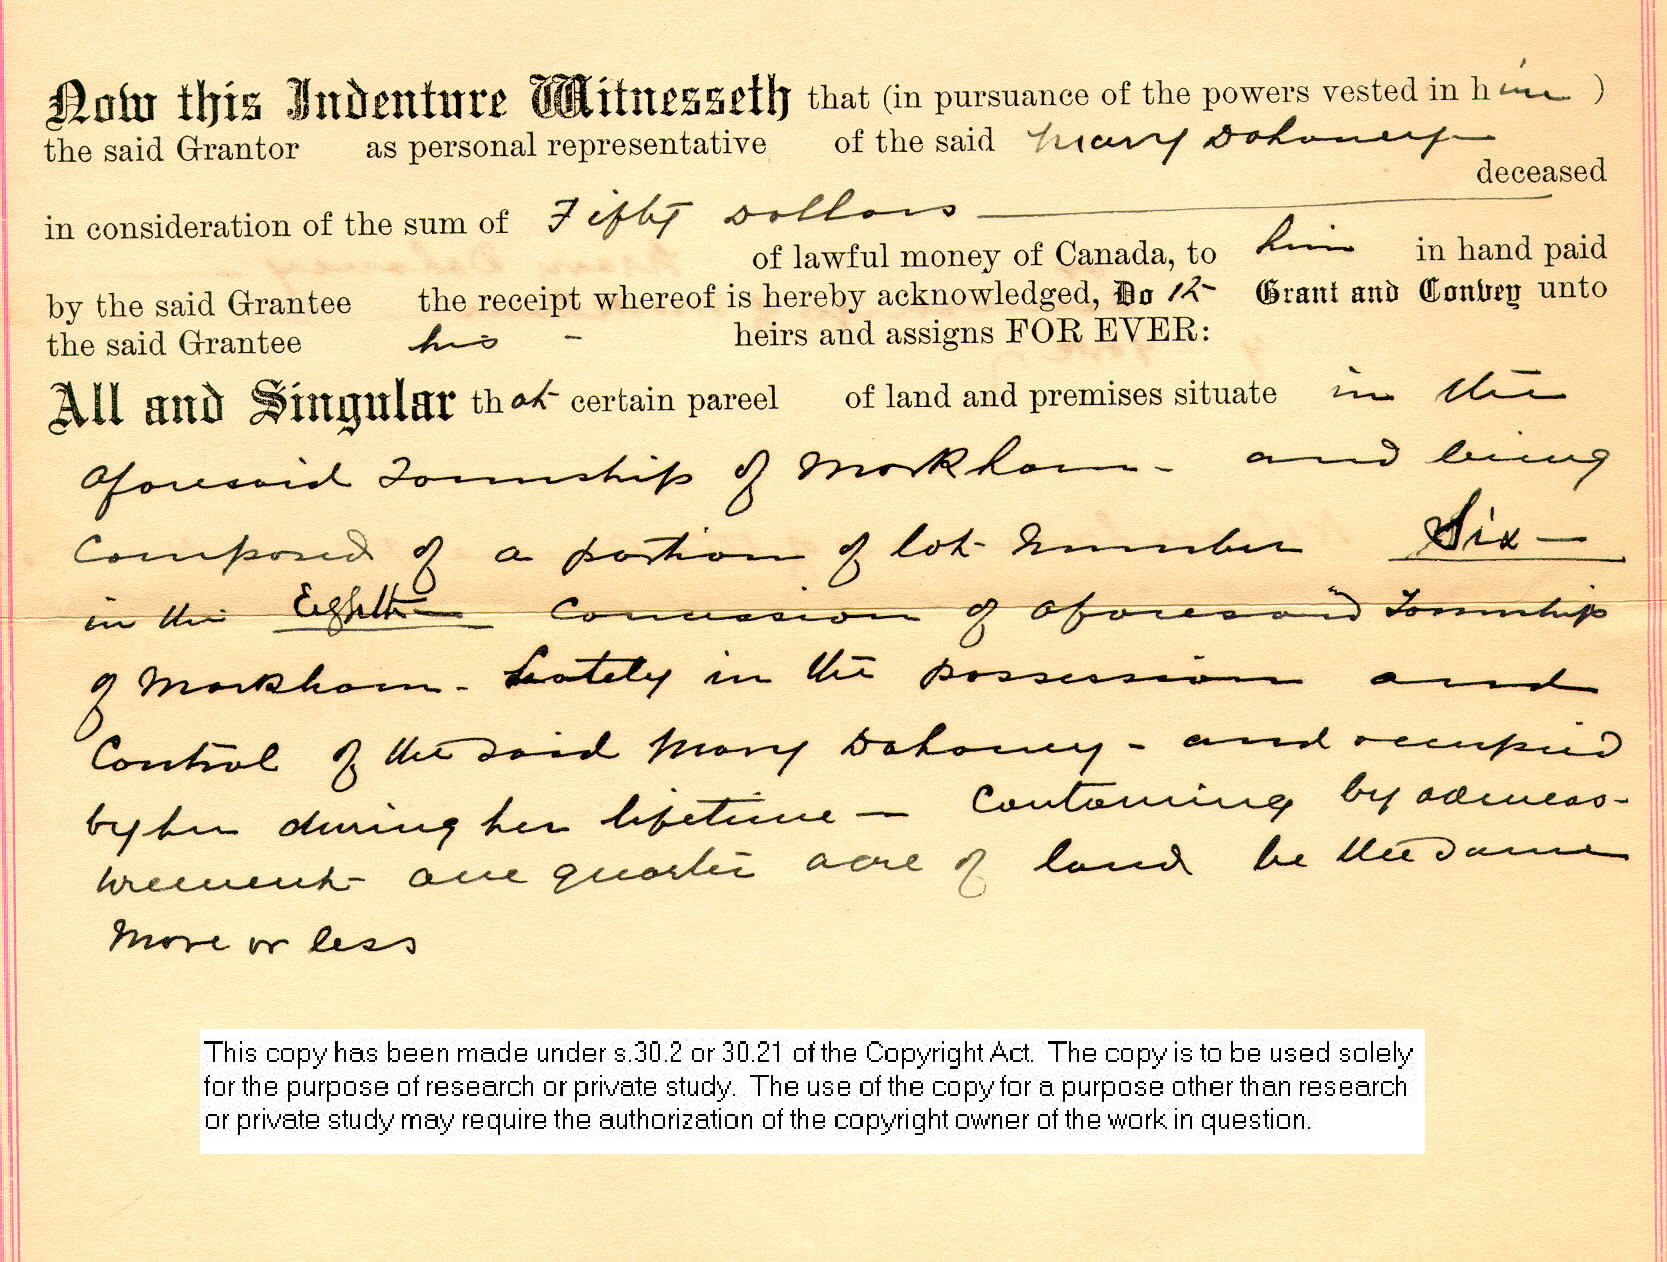 Now this Indenture Witnesseth that (in pursuance of the powers vested in him )
the said Grantor as personal representative of the said Mary Dahoney
deceased
in consideration of the sum of Fifty Dollars
of lawful money of Canada, to him in hand paid
by the said Grantee the receipt whereof is hereby acknowledged, Do th Grant and Convey unto
the said Grantee his - heirs and assigns FOR EVER:
All and Singular that certain parcel of land and premises situate in the
aforesaid Township of Markham - and being
Composed of a portion of lot Number Six -
in the Eighth - Concession of aforesaid Township
of Markham - Lately in the possession and
Control of the said Mary Dahoney - and occupied
by her during her lifetime - Containing by admeas-
urement one quarter acre of land be the same
more or less
This copy has been made under s.30.2 or 30.21 of the Copyright Act. The copy is to be used solely
for the purpose of research or private study. The use of the copy for a purpose other than research
or private study may require the authorization of the copyright owner of the work in question.